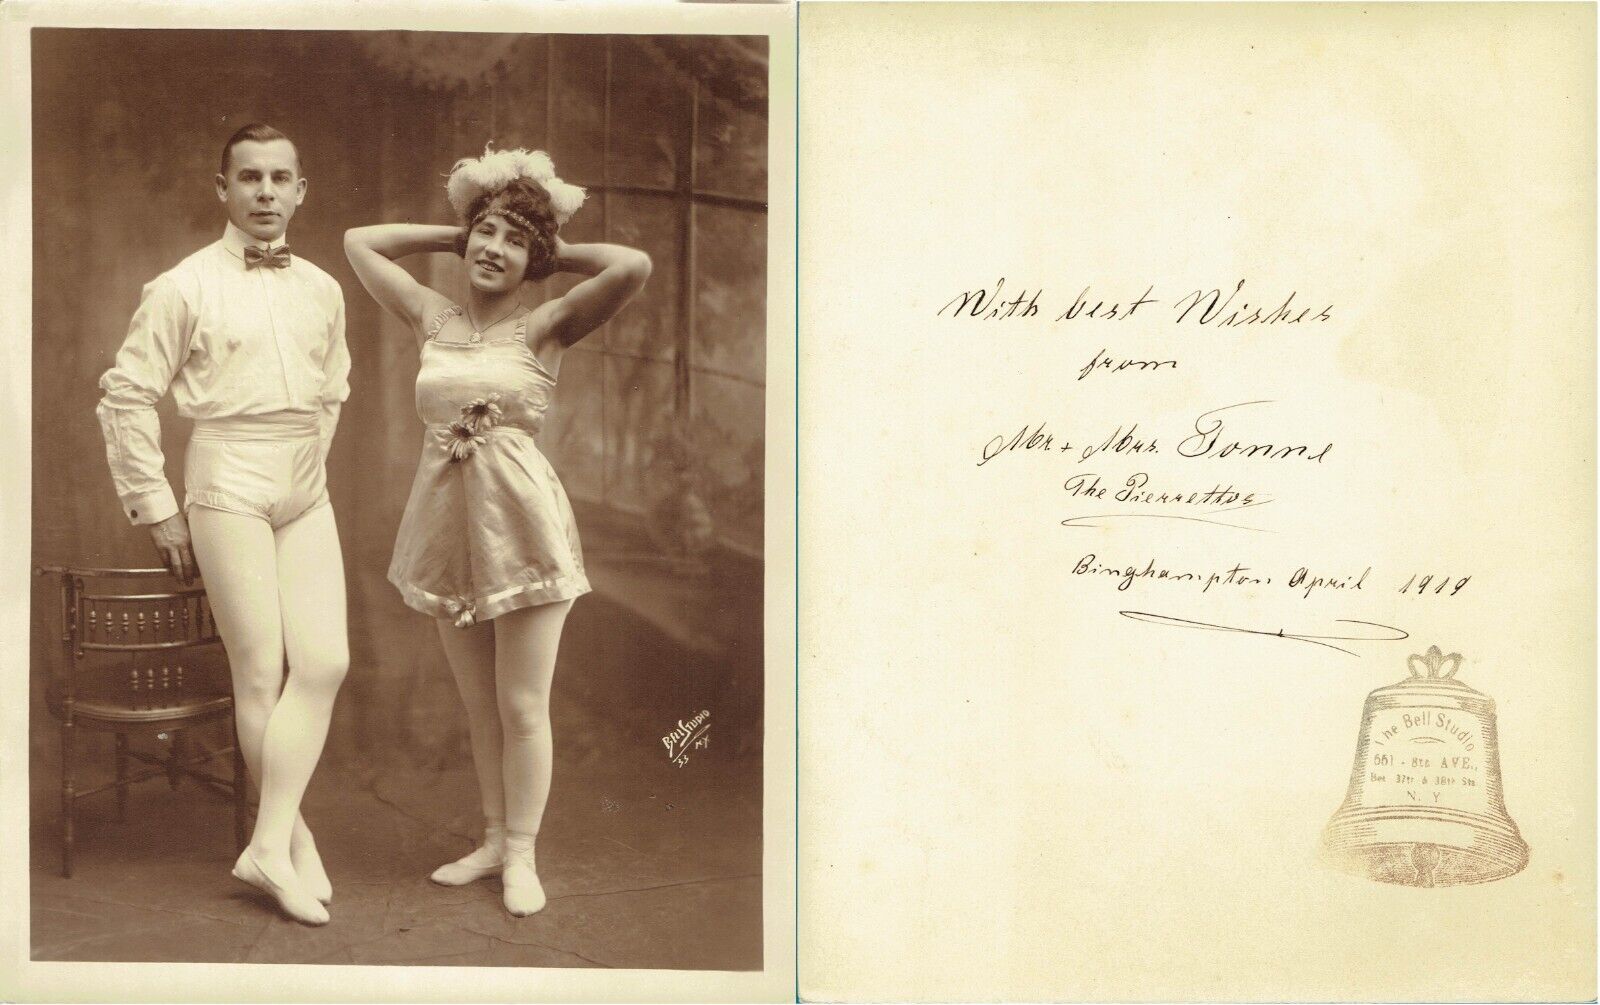 Bell Studio
N.Y.
33
With best Wishes
from
Mr. + Mrs. Tonne
The Pierrettos
Binghampton April 1919
The Bell Studio
661 - 8th AVE.,
Bet 37th & 38th Sts
N. Y